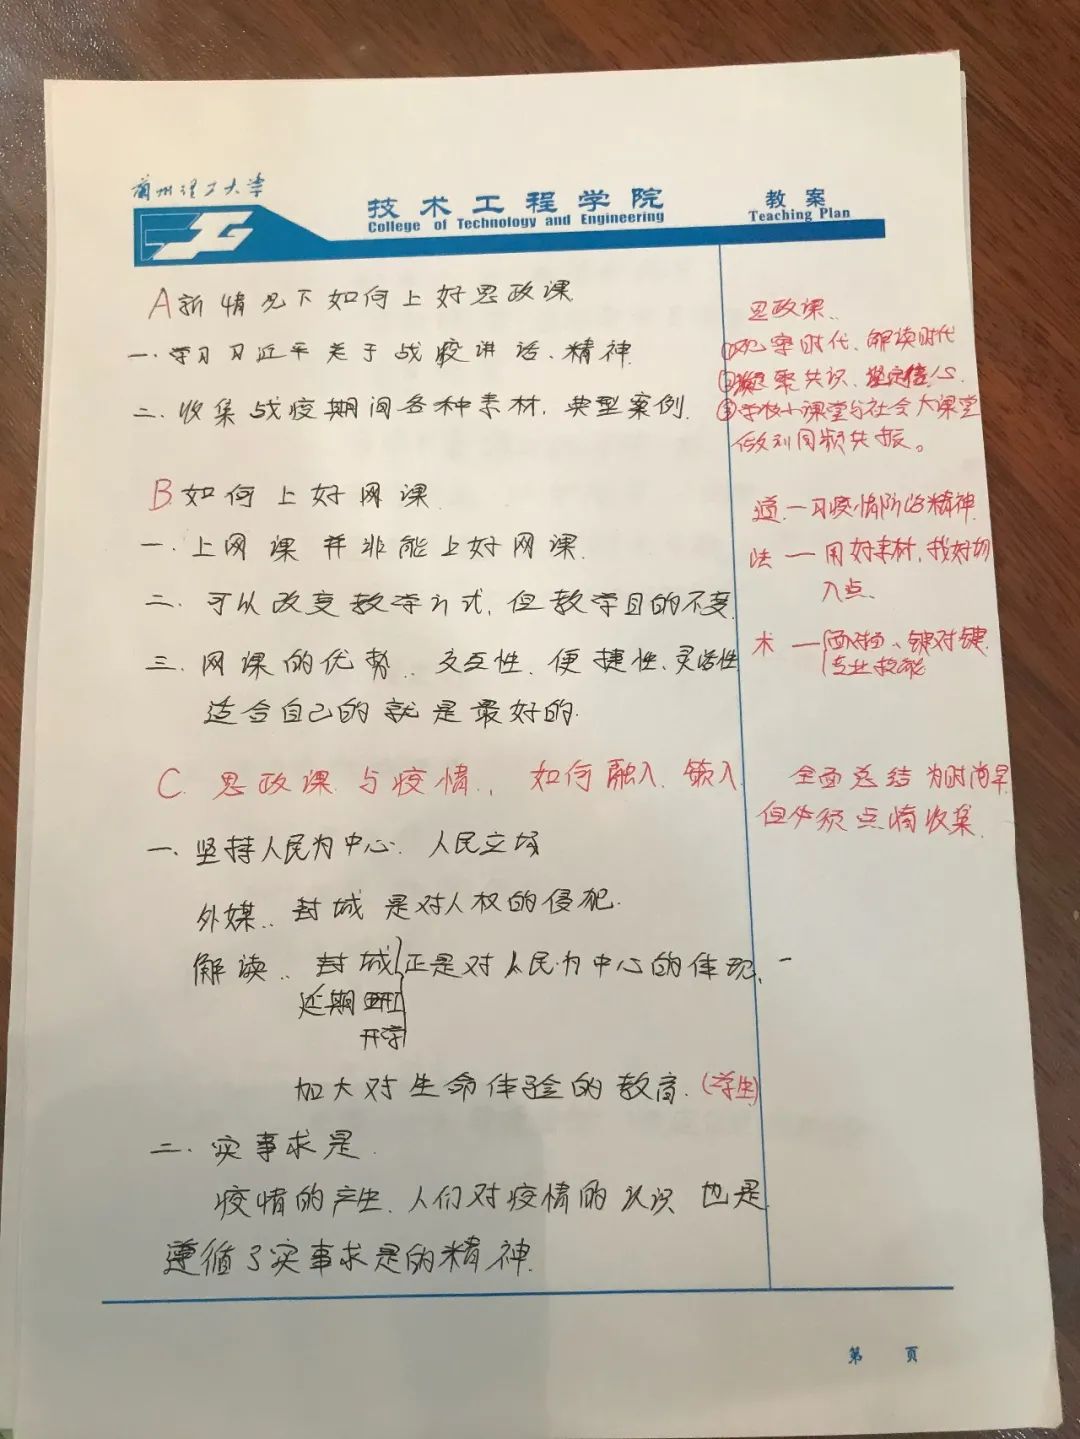 兰州理工大学
技术工程学院
College of Technology and Engineering
教案
Teaching Plan
A新情况下如何上好思政课
一.学习习近平关于战疫讲话、精神
二.收集战疫期间各种素材,典型案例.
B.如何上好网课
一.上网课并非能上好网课.
二.可以改变教学方式,但教学目的不变
三.网课的优势..交互性、便捷性、灵活性
适合自己的就是最好的.
C.思政课与疫情.,如何融入、嵌入
一.坚持人民为中心.人民立场
外媒..封城是对人权的侵犯.
解读..封城正是对人民为中心的体现.
延期
开学
加大对生命体验的教育.(学生)
二.实事求是.
疫情的产生、人们对疫情的认识也是
遵循了实事求是的精神.
思政课..
①观察时代、解读时代
②凝聚共识、坚定信心.
③学校小课堂与社会大课堂
做到同频共振。
道.一习疫情防的精神
法一用好素材,找好切
入点.
术一面对面、键对键.
专业技能
全面总结为时尚早
但必须点滴收集.
第 页